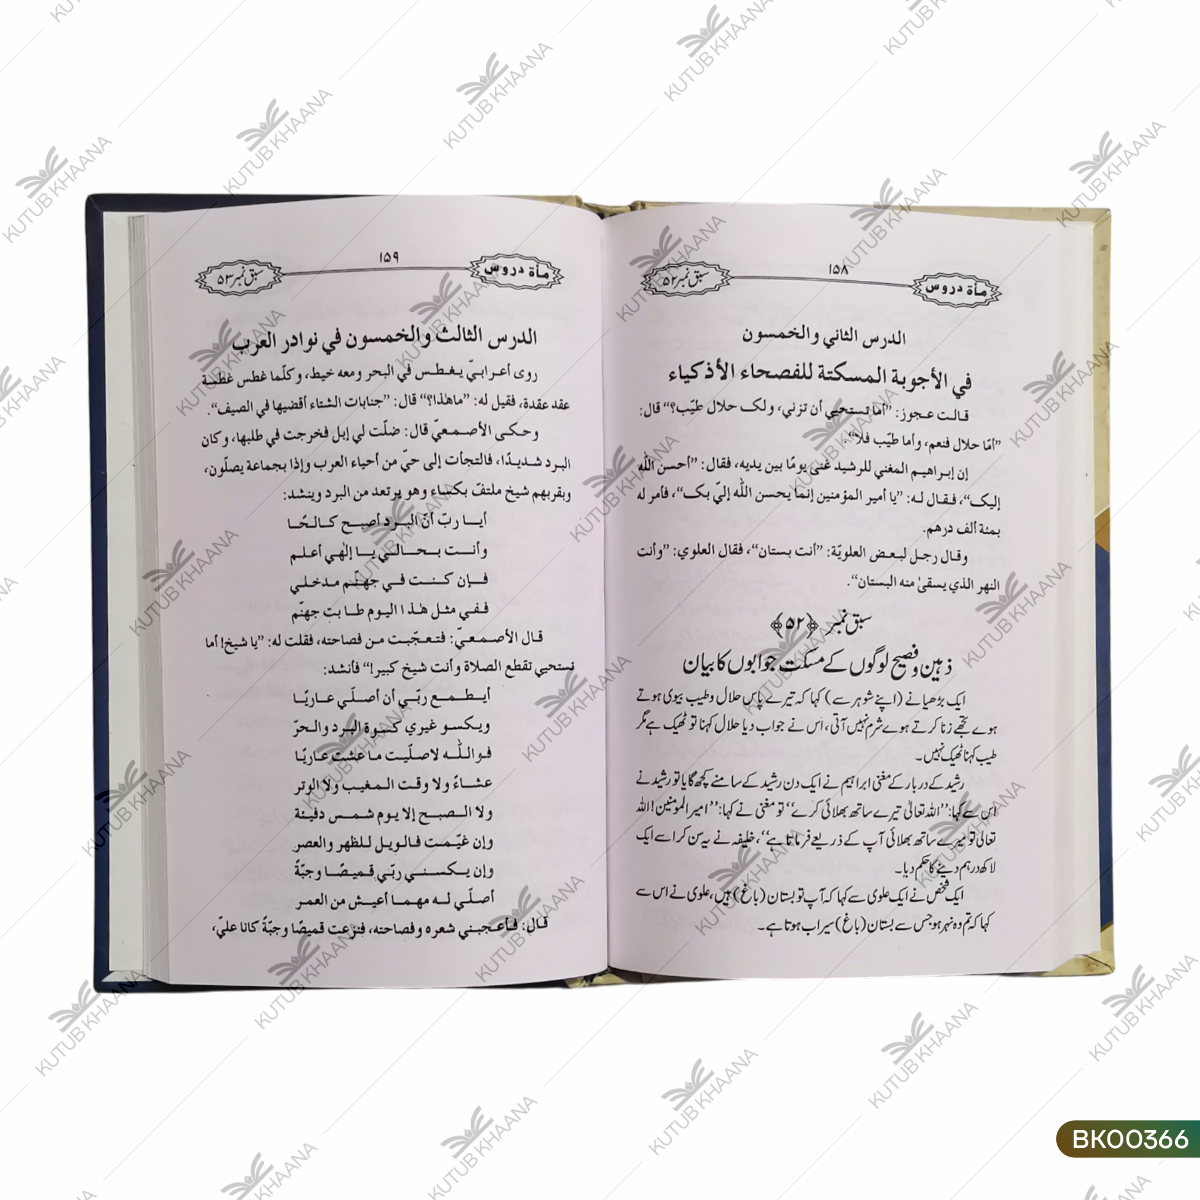 ۱۵۸
مأة دروس
سبق نمبر ۵۲
الدرس الثاني والخمسون
في الأجوبة المسكتة للفصحاء الأذكياء
قالت عجوز: ”أما تستحيي أن تزني، ولك حلال طيّب؟“ قال:
”أمّا حلال فنعم، وأما طيّب فلا“.
إن إبراهيم المغني للرشيد غنى يومًا بين يديه، فقال: ”أحسن اللّٰه
إليك“، فقال له: ”يا أمير المؤمنين إنما يحسن اللّٰه إليّ بك“، فأمر له
بمئة ألف درهم.
وقال رجل لبعض العلويّة: ”أنت بستان“، فقال العلوي: ”وأنت
النهر الذي يسقىٰ منه البستان“.
سبق نمبر ﴿۵۲﴾
ذہین و فصیح لوگوں کے مسکت جوابوں کا بیان
ایک بڑھیا نے (اپنے شوہر سے) کہا کہ تیرے پاس حلال وطیب بیوی ہوتے
ہوے تجھے زنا کرتے ہوے شرم نہیں آتی، اس نے جواب دیا حلال کہنا تو ٹھیک ہے مگر
طیب کہنا ٹھیک نہیں۔
رشید کے دربار کے مغنی ابراہیم نے ایک دن رشید کے سامنے کچھ گایا تو رشید نے
اس سے کہا: ’’اللہ تعالیٰ تیرے ساتھ بھلائی کرے‘‘ تو مغنی نے کہا: ’’امیر المؤمنین! اللہ
تعالیٰ تو میرے ساتھ بھلائی آپ کے ذریعے فرماتا ہے‘‘، خلیفہ نے یہ سن کر اسے ایک
لاکھ درہم دینے کا حکم دیا۔
ایک شخص نے ایک علوی سے کہا کہ آپ تو بستان (باغ) ہیں، علوی نے اس سے
کہا کہ تم وہ نہر ہو جس سے بستان (باغ) سیراب ہوتا ہے۔
۱۵۹
مأة دروس
سبق نمبر ۵۳
الدرس الثالث والخمسون في نوادر العرب
روى أعرابيّ يغطس في البحر ومعه خيط، وكلّما غطس غطسة
عقد عقدة، فقيل له: ”ما هٰذا؟“ قال: ”جنابات الشتاء أقضيها في الصيف“.
وحكى الأصمعيّ قال: ضلّت لي إبل فخرجت في طلبها، وكان
البرد شديدًا، فالتجأت إلى حيّ من أحياء العرب وإذا بجماعة يصلّون،
وبقربهم شيخ ملتفّ بكساء وهو يرتعد من البرد وينشد:
أيا ربّ أنّ البرد أصبح كالحًا
وأنت بحالي يا إلٰهي أعلم
فإن كنت في جهنّم مدخلي
ففي مثل هٰذا اليوم طابت جهنّم
قال الأصمعيّ: فتعجّبت من فصاحته، فقلت له: ”يا شيخ! أما
تستحيي تقطع الصلاة وأنت شيخ كبير!“ فأنشد:
أيطمع ربّي أن أصلّي عاريًا
ويكسو غيري كسوة البرد والحرّ
فواللّٰه لاصلّيت ما عشت عاريًا
عشاءً ولا وقت المغيب ولا الوتر
ولا الصبح إلا يوم شمس دفيئة
وإن غيّمت فالويل للظهر والعصر
وإن يكسني ربّي قميصًا وجبّةً
أصلّي له مهما أعيش من العمر
قال: فأعجبني شعره وفصاحته، فنزعت قميصًا وجبّةً كانا عليّ،
KUTUB KHAANA
BK00366